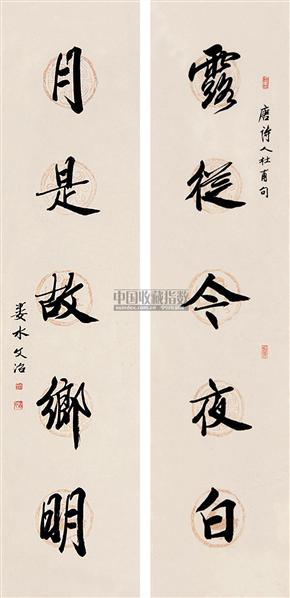 唐诗人杜甫句
露從今夜白
月是故鄉明
娄水文治
中国收藏指数